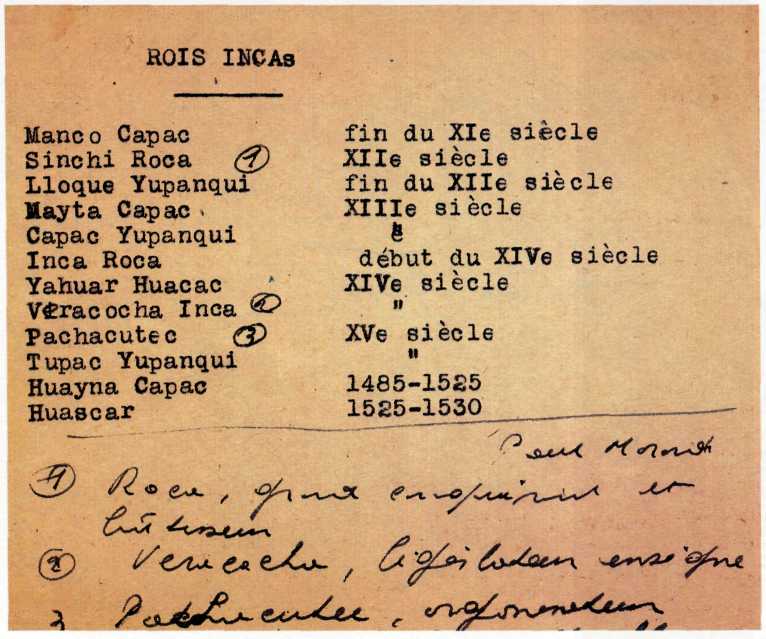 ROIS INCAs
Manco Capac fin du XIe siècle
Sinchi Roca 1 XIIe siècle
Lloque Yupanqui fin du XIIe siècle
Mayta Capac XIIIe siècle
Capac Yupanqui
Inca Roca début du XIVe siècle
Yahuar Huacac XIVe siècle
Veracocha Inca 2 "
Pachacutec 3 XVe siècle
Tupac Yupanqui "
Huayna Capac 1485-1525
Huascar 1525-1530
Paul Morand
1 Roca, grand conquérant et
bâtisseur
2 Veracocha, législateur enseigne
3 Pachacutec, organisateur